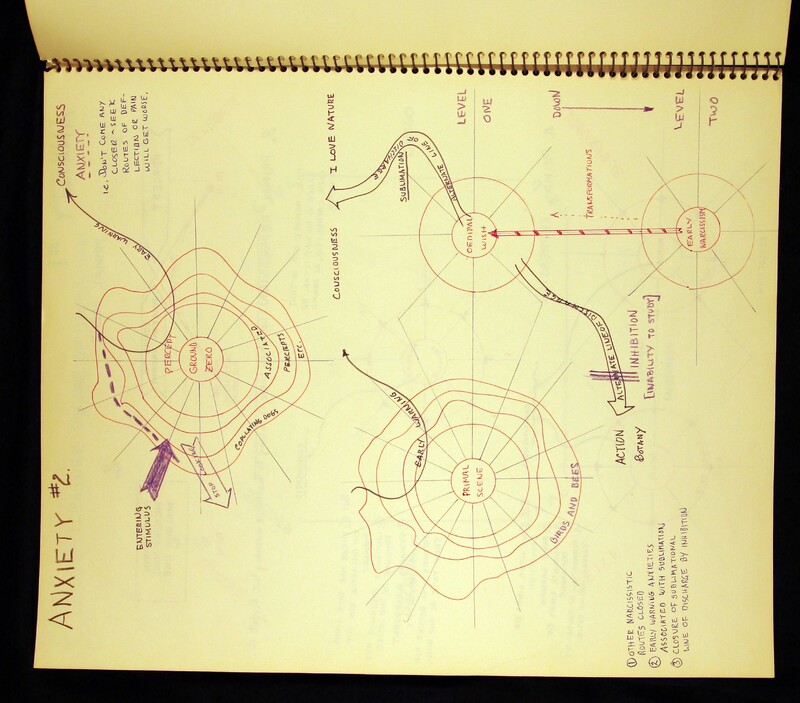 ANXIETY #2.
ENTERING
STIMULUS
STOP LOOKING
COPULATING DOGS
PERCEPT
GROUND
ZERO
ASSOCIATED
PERCEPTS
ETC.
EARY WARNING
CONSCIOUSNESS
ANXIETY
ie. DON'T COME ANY
CLOSER - SEEK
ROUTES OF DEF-
LECTION OR PAIN
WILL GET WORSE.
PRIMAL
SCENE
BIRDS AND BEES
EARLY WARNING
CONSCIOUSNESS
I LOVE NATURE
SUBLIMATION
ALTERNATE LINE OF DISCHARGE
OEDIPAL
WISH
LEVEL
ONE
DOWN
LEVEL
TWO
TRANSFORMATIONS
EARLY
NARCISSISM
ALTERNATE LINE OF DISCHARGE
INHIBITION
[INABILITY TO STUDY]
ACTION
BOTANY
① OTHER NARCISSISTIC
ROUTES CLOSED
② EARLY WARNING ANXIETIES
ASSOCIATED WITH SUBLIMATION
③ CLOSURE OF SUBLIMATIONAL
LINE OF DISCHARGE BY INHIBITION